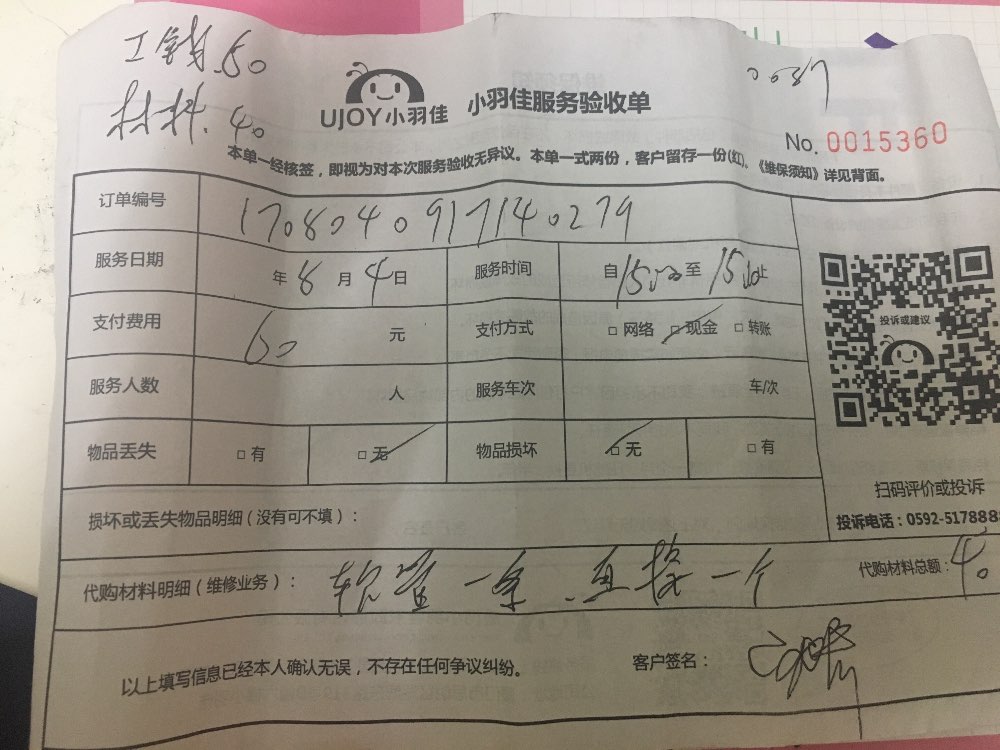 工钱.50
材料.40
UJOY小羽佳 小羽佳服务验收单
No. 0015360
本单一经核签，即视为对本次服务验收无异议。本单一式两份，客户留存一份(红)。《维保须知》详见背面。
订单编号 1708040917140279
服务日期 年8月4日 服务时间 自 至 止
支付费用 60 元 支付方式 □网络 □现金 □转账
服务人数 人 服务车次 车/次
物品丢失 □有 □无 物品损坏 □无 □有
投诉或建议
扫码评价或投诉
投诉电话：0592-5178888
损坏或丢失物品明细（没有可不填）：
代购材料明细（维修业务）： 软管一条.直接一个 代购材料总额：40
以上填写信息已经本人确认无误，不存在任何争议纠纷。 客户签名：